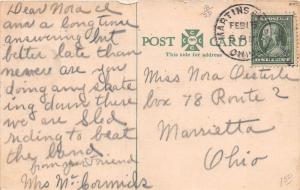 Dear Nora
and a long time
answering but
better late than
never are you
doing any skat
ing down there
we are sled
riding to beat
the band.
from your Friend
Mrs McCormick
POST CARD
This side for address.
MARTINS
FEB
OHIO
ONE CENT
Miss Nora Oesterle
box 78 Route 2
Marrietta
Ohio